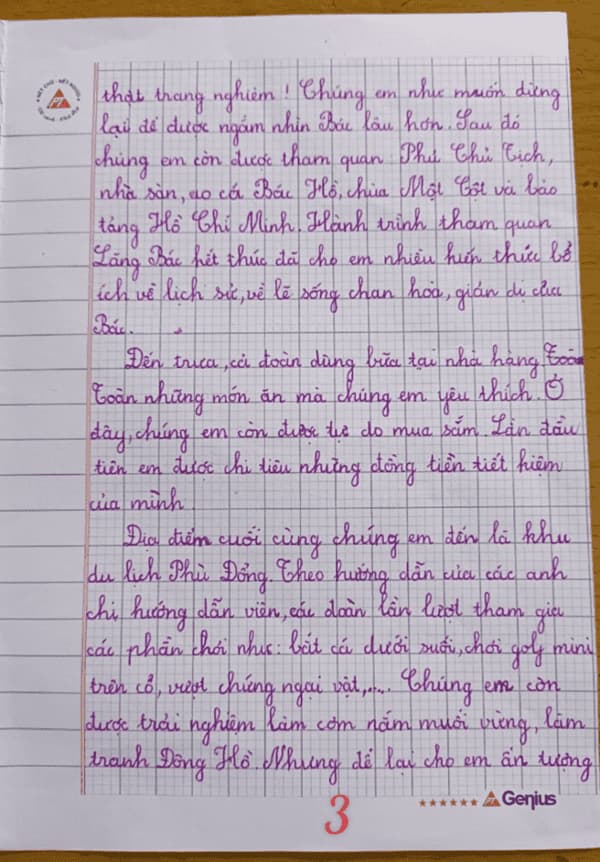 thật trang nghiêm! Chúng em như muốn dừng
lại để được ngắm nhìn Bác lâu hơn. Sau đó
chúng em còn được tham quan Phủ Chủ Tịch,
nhà sàn, ao cá Bác Hồ, chùa Một Cột và bảo
tàng Hồ Chí Minh. Hành trình tham quan
Lăng Bác kết thúc đã cho em nhiều kiến thức bổ
ích về lịch sử, về lẽ sống chan hoà, giản dị của
Bác.
Đến trưa, cả đoàn dùng bữa tại nhà hàng. Toàn
Toàn những món ăn mà chúng em yêu thích. Ở
đây, chúng em còn được tự do mua sắm. Lần đầu
tiên em được chi tiêu những đồng tiền tiết kiệm
của mình.
Địa điểm cuối cùng chúng em đến là khu
du lịch Phù Đổng. Theo hướng dẫn của các anh
chị hướng dẫn viên, các đoàn lần lượt tham gia
các phần chơi như: bắt cá dưới suối, chơi golf mini
trên cỏ, vượt chướng ngại vật,.... Chúng em còn
được trải nghiệm làm cơm nắm muối vừng, làm
tranh Đông Hồ. Nhưng để lại cho em ấn tượng
3
Genius